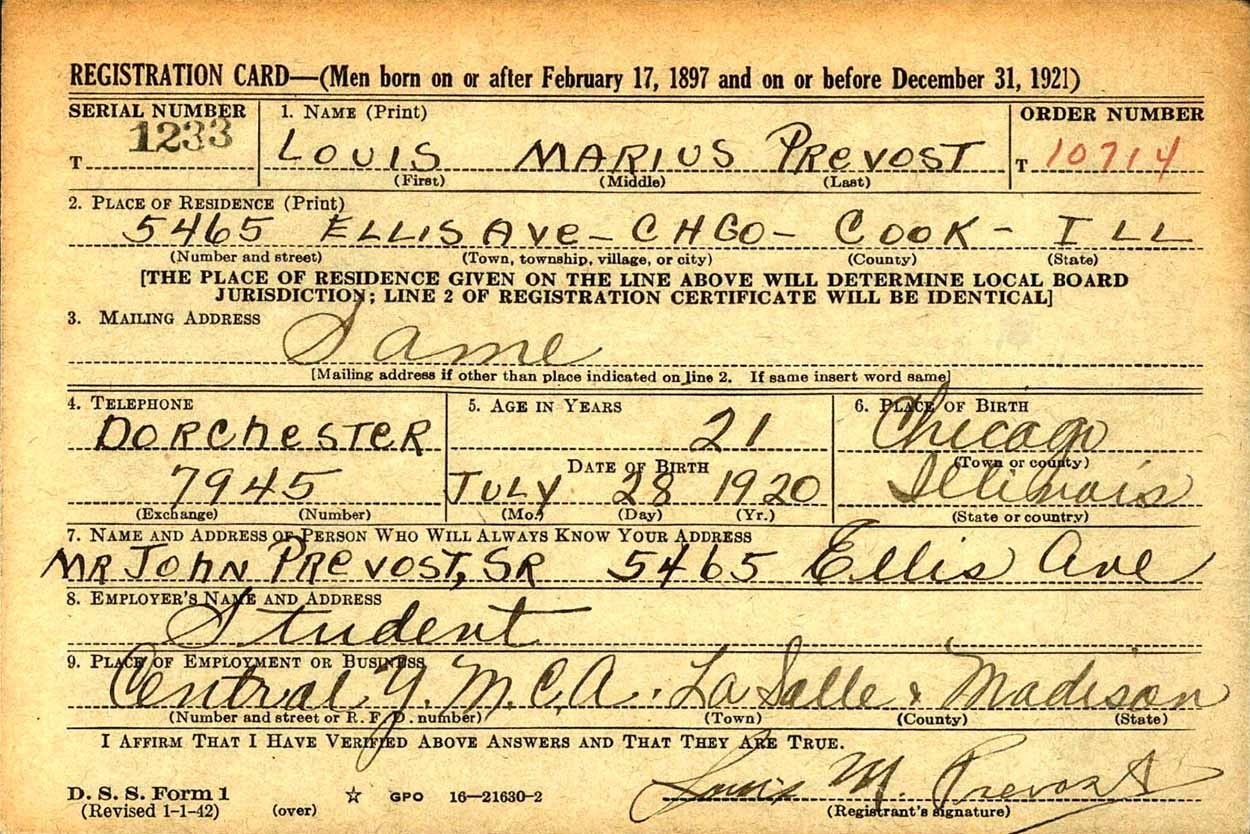 REGISTRATION CARD—(Men born on or after February 17, 1897 and on or before December 31, 1921)
SERIAL NUMBER 1. NAME (Print) ORDER NUMBER
T 1233 LOUIS MARIUS PREVOST T 10714
(First) (Middle) (Last)
2. PLACE OF RESIDENCE (Print)
5465 ELLIS AVE - CHGO - COOK - ILL
(Number and street) (Town, township, village, or city) (County) (State)
[THE PLACE OF RESIDENCE GIVEN ON THE LINE ABOVE WILL DETERMINE LOCAL BOARD
JURISDICTION; LINE 2 OF REGISTRATION CERTIFICATE WILL BE IDENTICAL]
3. MAILING ADDRESS
Same
[Mailing address if other than place indicated on line 2. If same insert word same]
4. TELEPHONE 5. AGE IN YEARS 6. PLACE OF BIRTH
DORCHESTER 21 Chicago
DATE OF BIRTH (Town or county)
7945 JULY 28 1920 Illinois
(Exchange) (Number) (Mo.) (Day) (Yr.) (State or country)
7. NAME AND ADDRESS OF PERSON WHO WILL ALWAYS KNOW YOUR ADDRESS
MR JOHN PREVOST, SR 5465 Ellis Ave
8. EMPLOYER'S NAME AND ADDRESS
Student
9. PLACE OF EMPLOYMENT OR BUSINESS
Central Y.M.C.A. La Salle & Madison
(Number and street or R. F. D. number) (Town) (County) (State)
I AFFIRM THAT I HAVE VERIFIED ABOVE ANSWERS AND THAT THEY ARE TRUE.
Louis M. Prevost
D. S. S. Form 1
(Revised 1-1-42) (over) ☆ GPO 16—21630-2 (Registrant's signature)